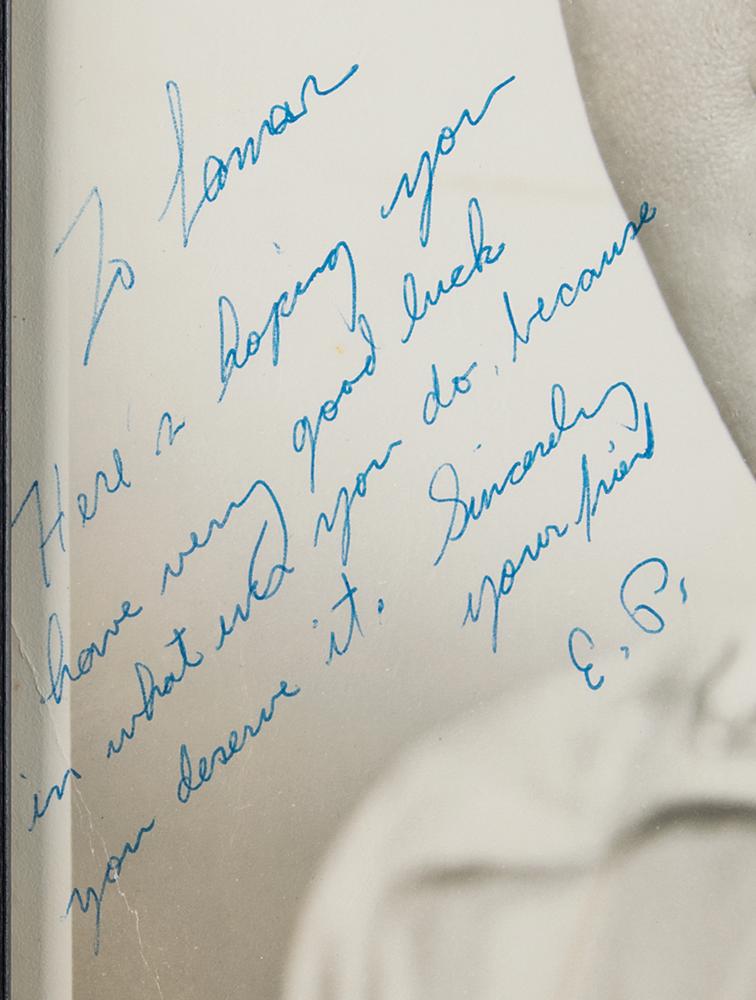 To Lamar
Here's hoping you
have very good luck
in what every you do, because
you deserve it. Sincerely
your friend
E.P.